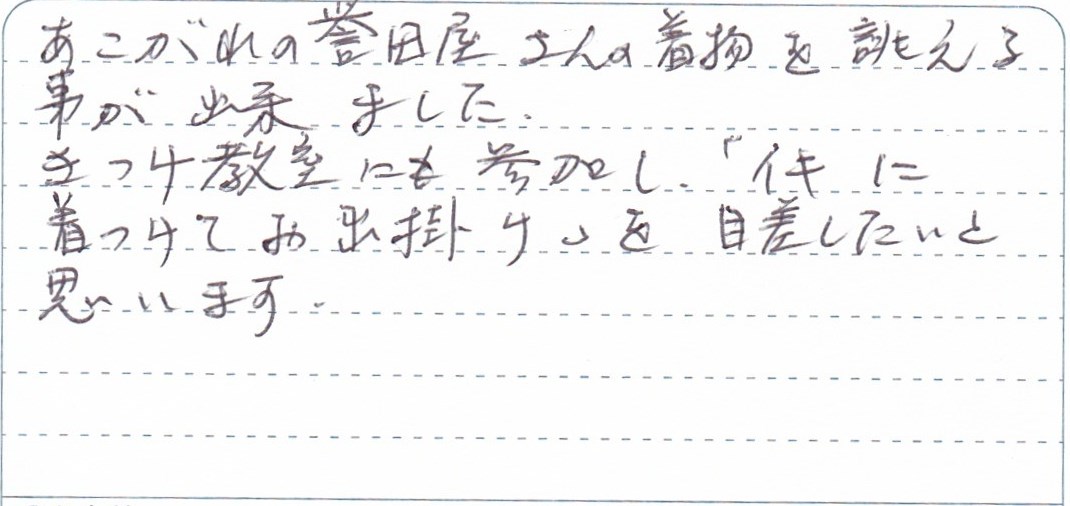 あこがれの誉田屋さんの着物を誂える
事が出来ました.
きつけ教室にも参加し、「イキに
着つけてお出掛け」を目差したいと
思います.